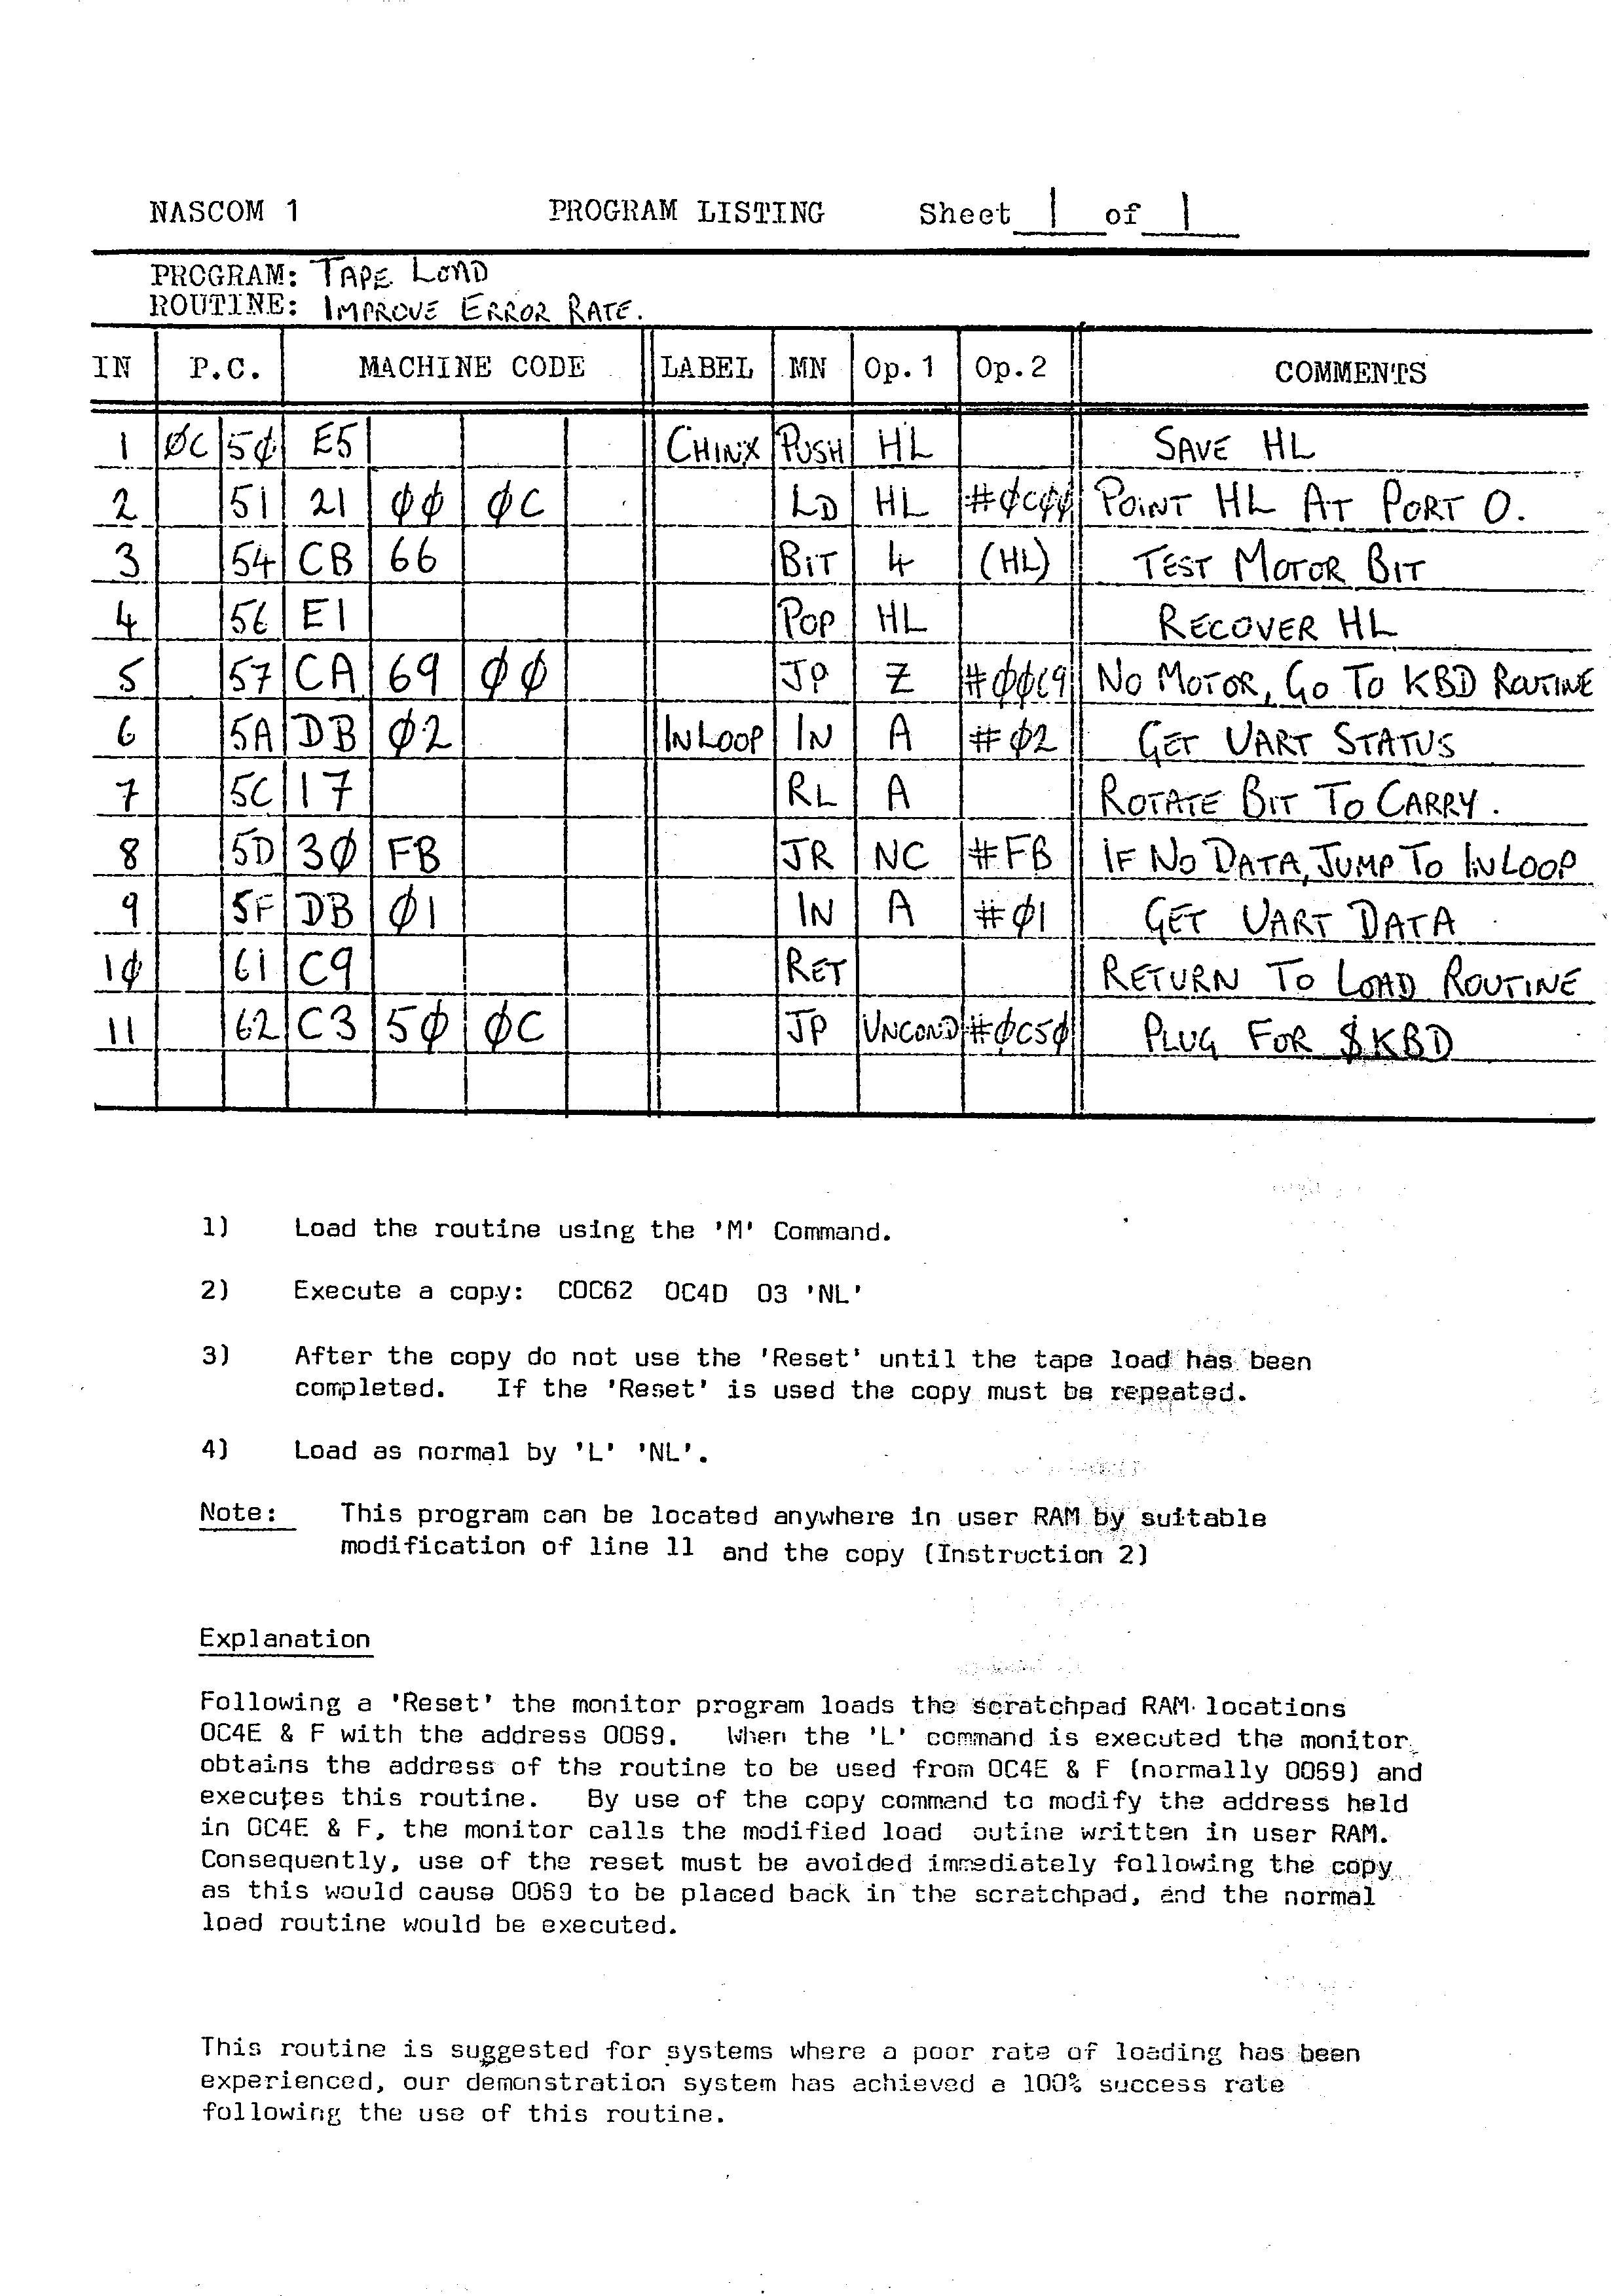 NASCOM 1 PROGRAM LISTING Sheet 1 of 1
PROGRAM: TAPE LOAD
ROUTINE: IMPROVE ERROR RATE.
IN P.C. MACHINE CODE LABEL MN Op.1 Op.2 COMMENTS
1 0C 50 E5 CHINX PUSH HL SAVE HL
2 51 21 00 0C LD HL #0C00 POINT HL AT PORT 0.
3 54 CB 66 BIT 4 (HL) TEST MOTOR BIT
4 56 E1 POP HL RECOVER HL
5 57 CA 69 00 JP Z #0069 NO MOTOR, GO TO KBD ROUTINE
6 5A DB 02 INLOOP IN A #02 GET UART STATUS
7 5C 17 RL A ROTATE BIT TO CARRY.
8 5D 30 FB JR NC #FB IF NO DATA, JUMP TO INLOOP
9 5F DB 01 IN A #01 GET UART DATA
10 61 C9 RET RETURN TO LOAD ROUTINE
11 62 C3 50 0C JP UNCOND #0C50 PLUG FOR $KBD
1) Load the routine using the 'M' Command.
2) Execute a copy: COC62 OC4D O3 'NL'
3) After the copy do not use the 'Reset' until the tape load has been
completed. If the 'Reset' is used the copy must be repeated.
4) Load as normal by 'L' 'NL'.
Note: This program can be located anywhere in user RAM by suitable
modification of line 11 and the copy (Instruction 2)
Explanation
Following a 'Reset' the monitor program loads the scratchpad RAM locations
OC4E & F with the address 0069. When the 'L' command is executed the monitor
obtains the address of the routine to be used from OC4E & F (normally 0069) and
executes this routine. By use of the copy command to modify the address held
in OC4E & F, the monitor calls the modified load outine written in user RAM.
Consequently, use of the reset must be avoided immediately following the copy
as this would cause 0069 to be placed back in the scratchpad, and the normal
load routine would be executed.
This routine is suggested for systems where a poor rate of loading has been
experienced, our demonstration system has achieved a 100% success rate
following the use of this routine.